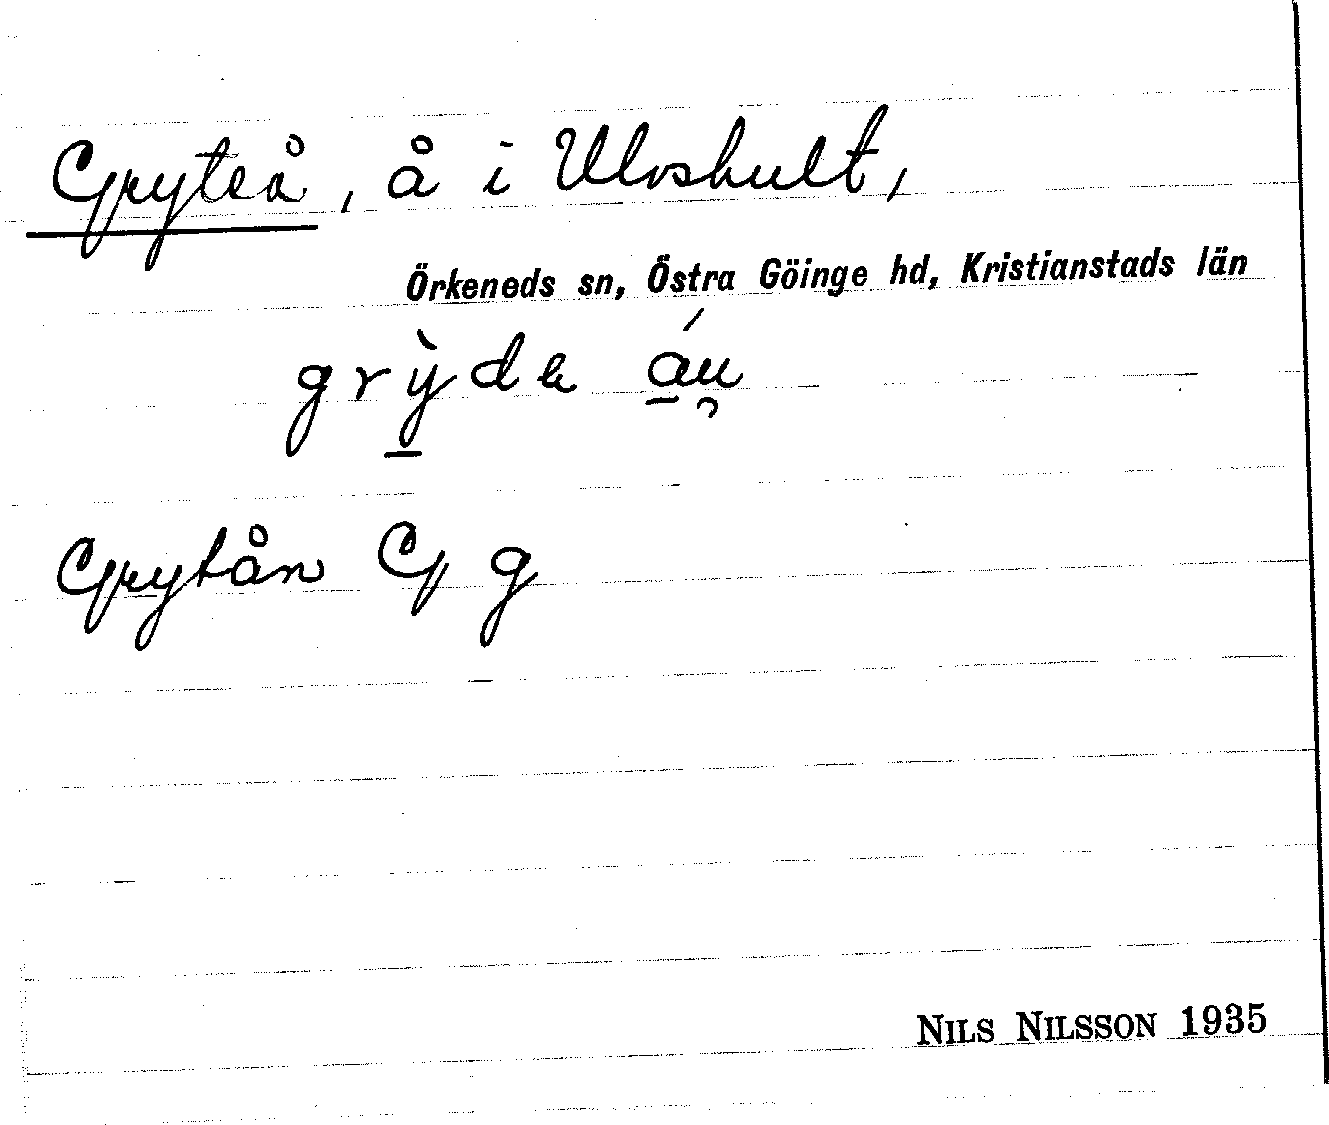 Gryteå, å i Ulvshult,
Örkeneds sn, Östra Göinge hd, Kristianstads län
grỳda áu
Grytån G g
NILS NILSSON 1935